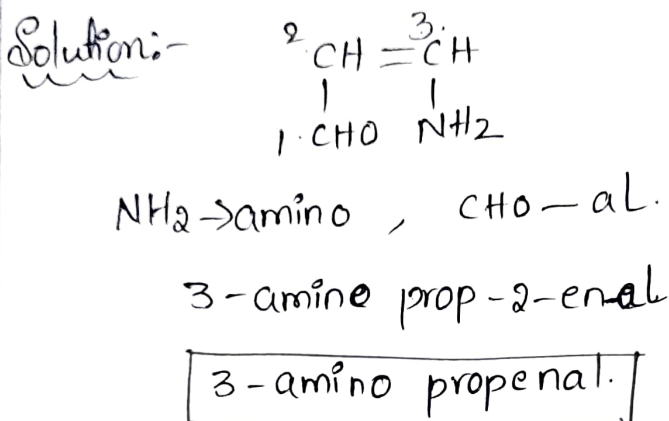 Solution:- 2 CH = 3. CH
1. CHO NH2
NH2 → amino , CHO — al.
3 - amine prop - 2 - en-al
3 - amino propenal.